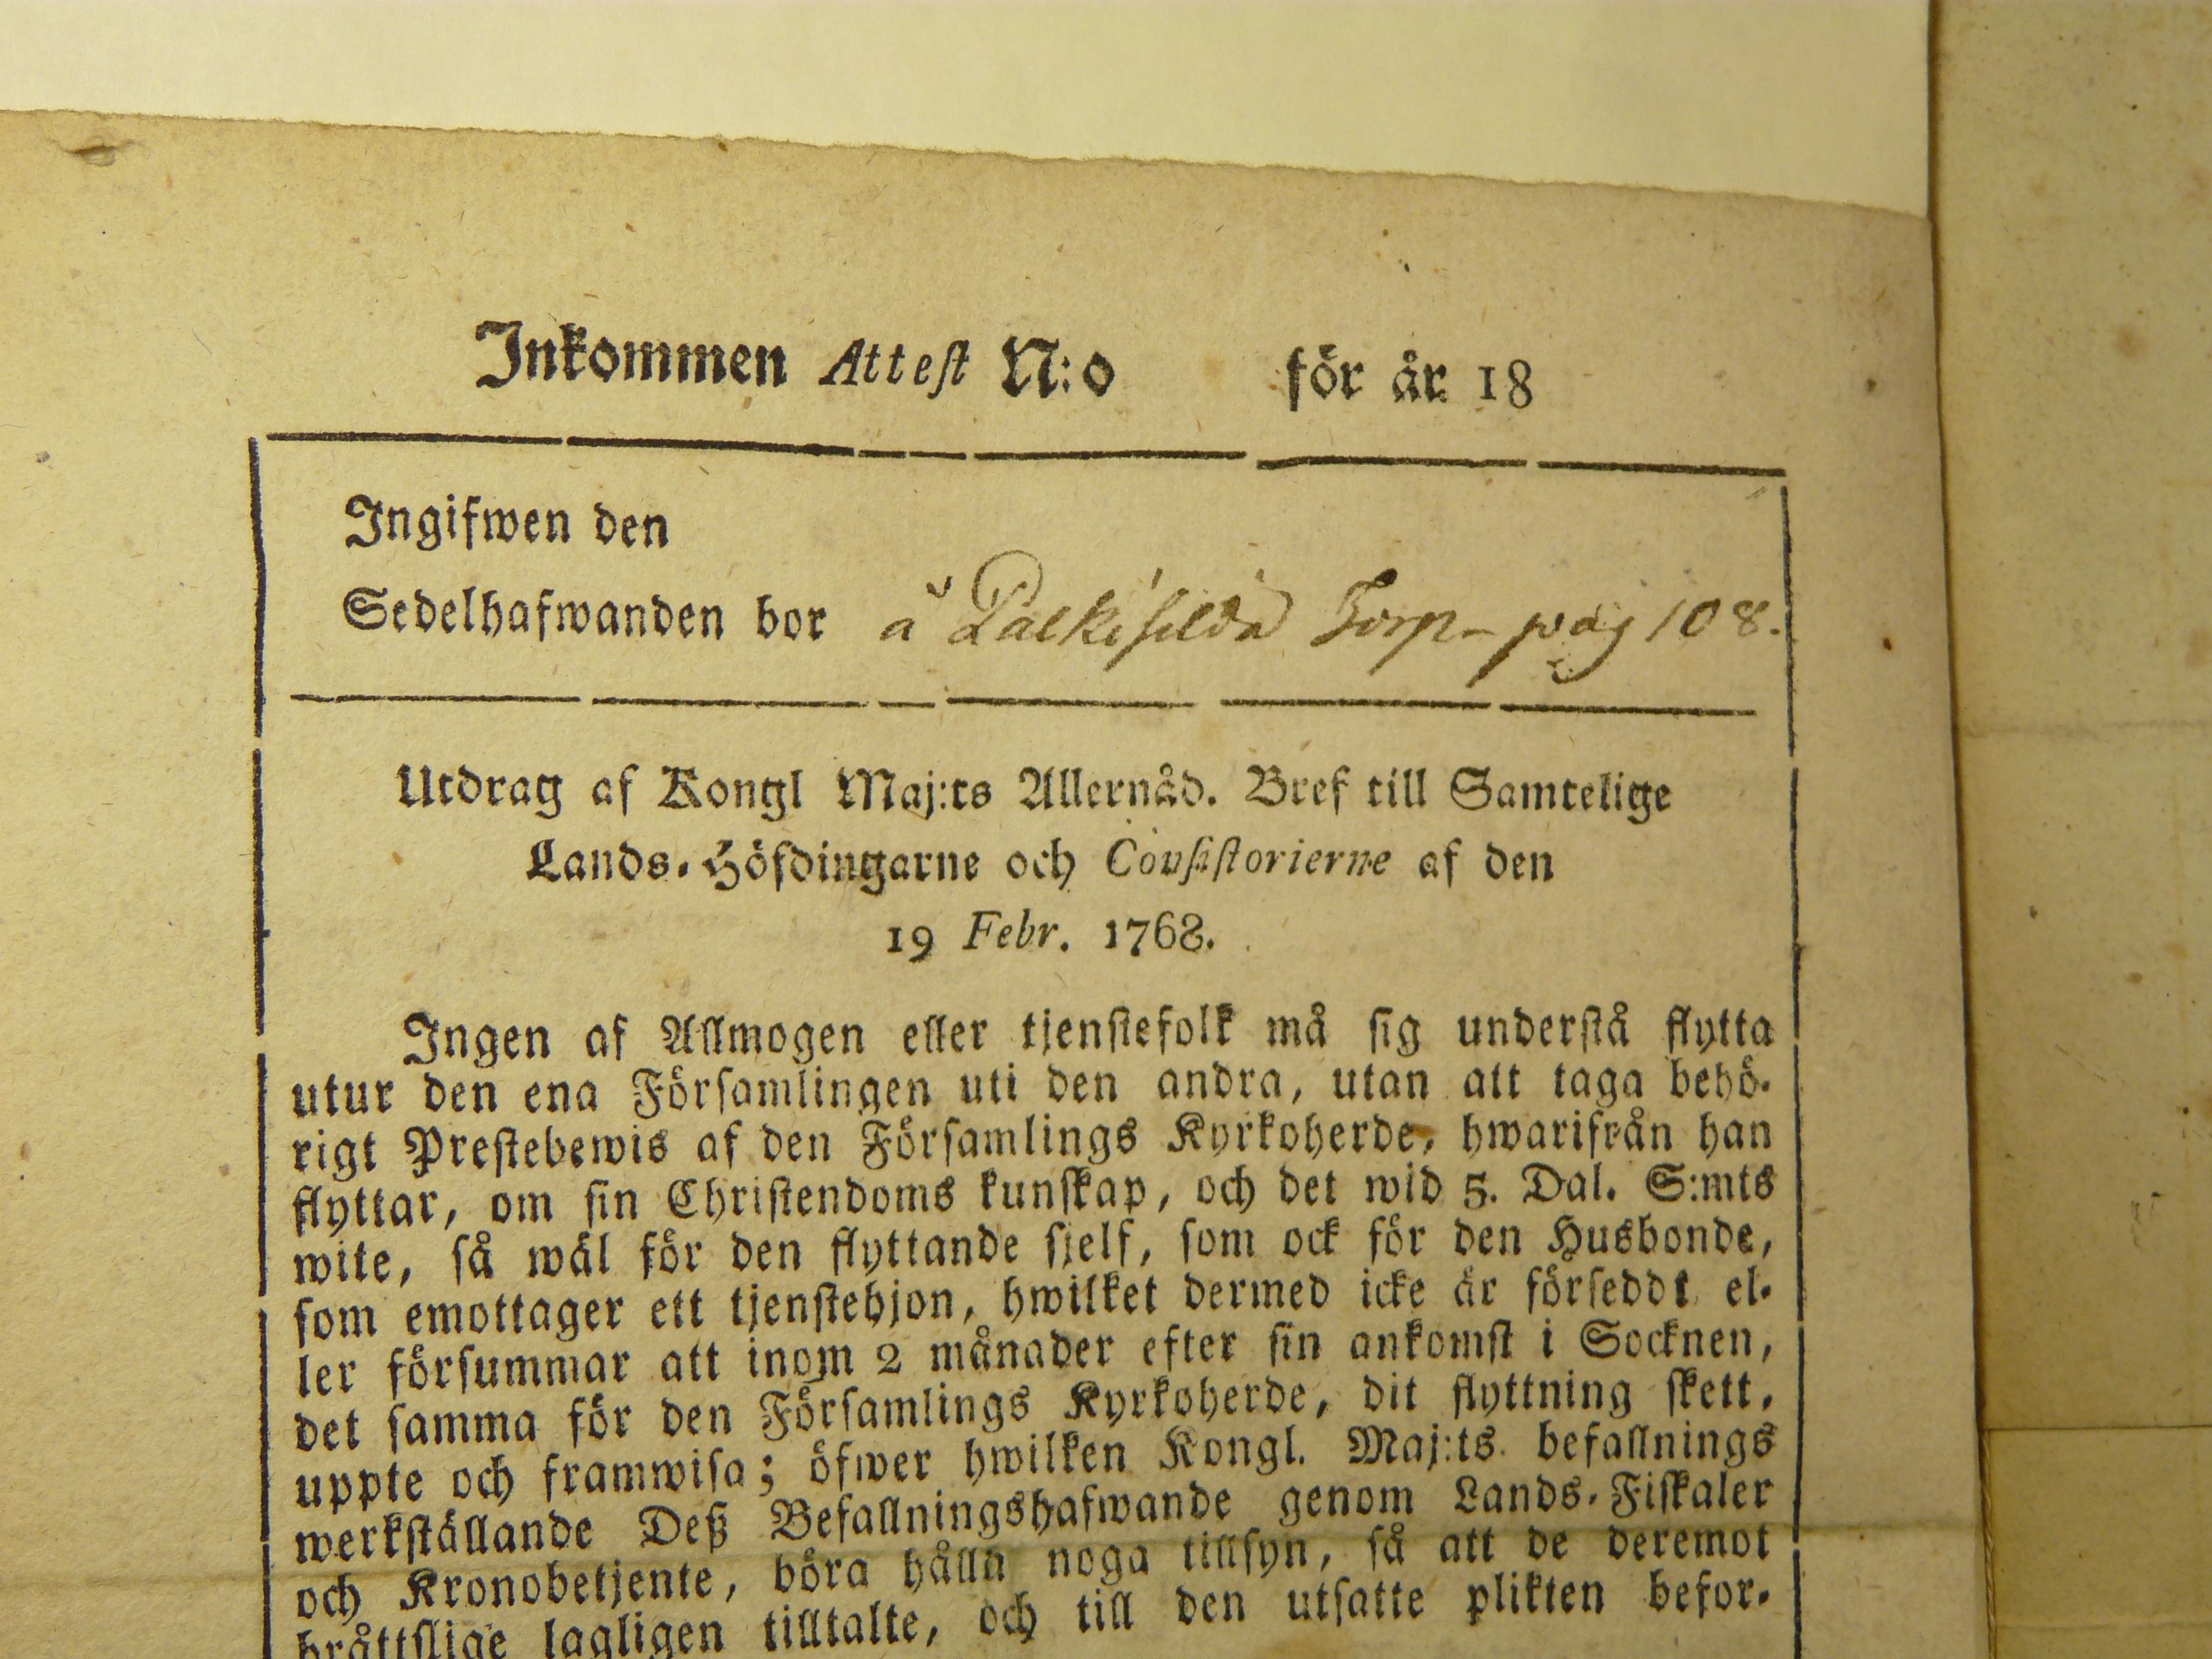 Inkommen Attest N:o för år 18
Ingifwen den
Sedelhafwanden bor å Torp - pag 108.
Utdrag af Kongl Maj:ts Allernåd. Bref till Samtelige
Lands-Höfdingarne och Consistorierne af den
19 Febr. 1768.
Ingen af Allmogen eller tjenstefolk må sig understå flytta
utur den ena Församlingen uti den andra, utan att taga behö-
rigt Prestebewis af den Församlings Kyrkoherde, hwarifrån han
flyttar, om sin Christendoms kunskap, och det wid 5. Dal. S:mts
wite, så wäl för den flyttande sjelf, som ock för den Husbonde,
som emottager ett tjenstehjon, hwilket dermed icke är förseddt el-
ler försummar att inom 2 månader efter sin ankomst i Socknen,
det samma för den Församlings Kyrkoherde, dit flyttning skett,
uppte och framwisa; öfwer hwilken Kongl. Maj:ts befallnings
werkställande Deß Befallningshafwande genom Lands-Fiskaler
och Kronobetjente, böra hålla noga tillsyn, så att de deremot
bråttslige lagligen tilltalte, och till den utsatte plikten befor-